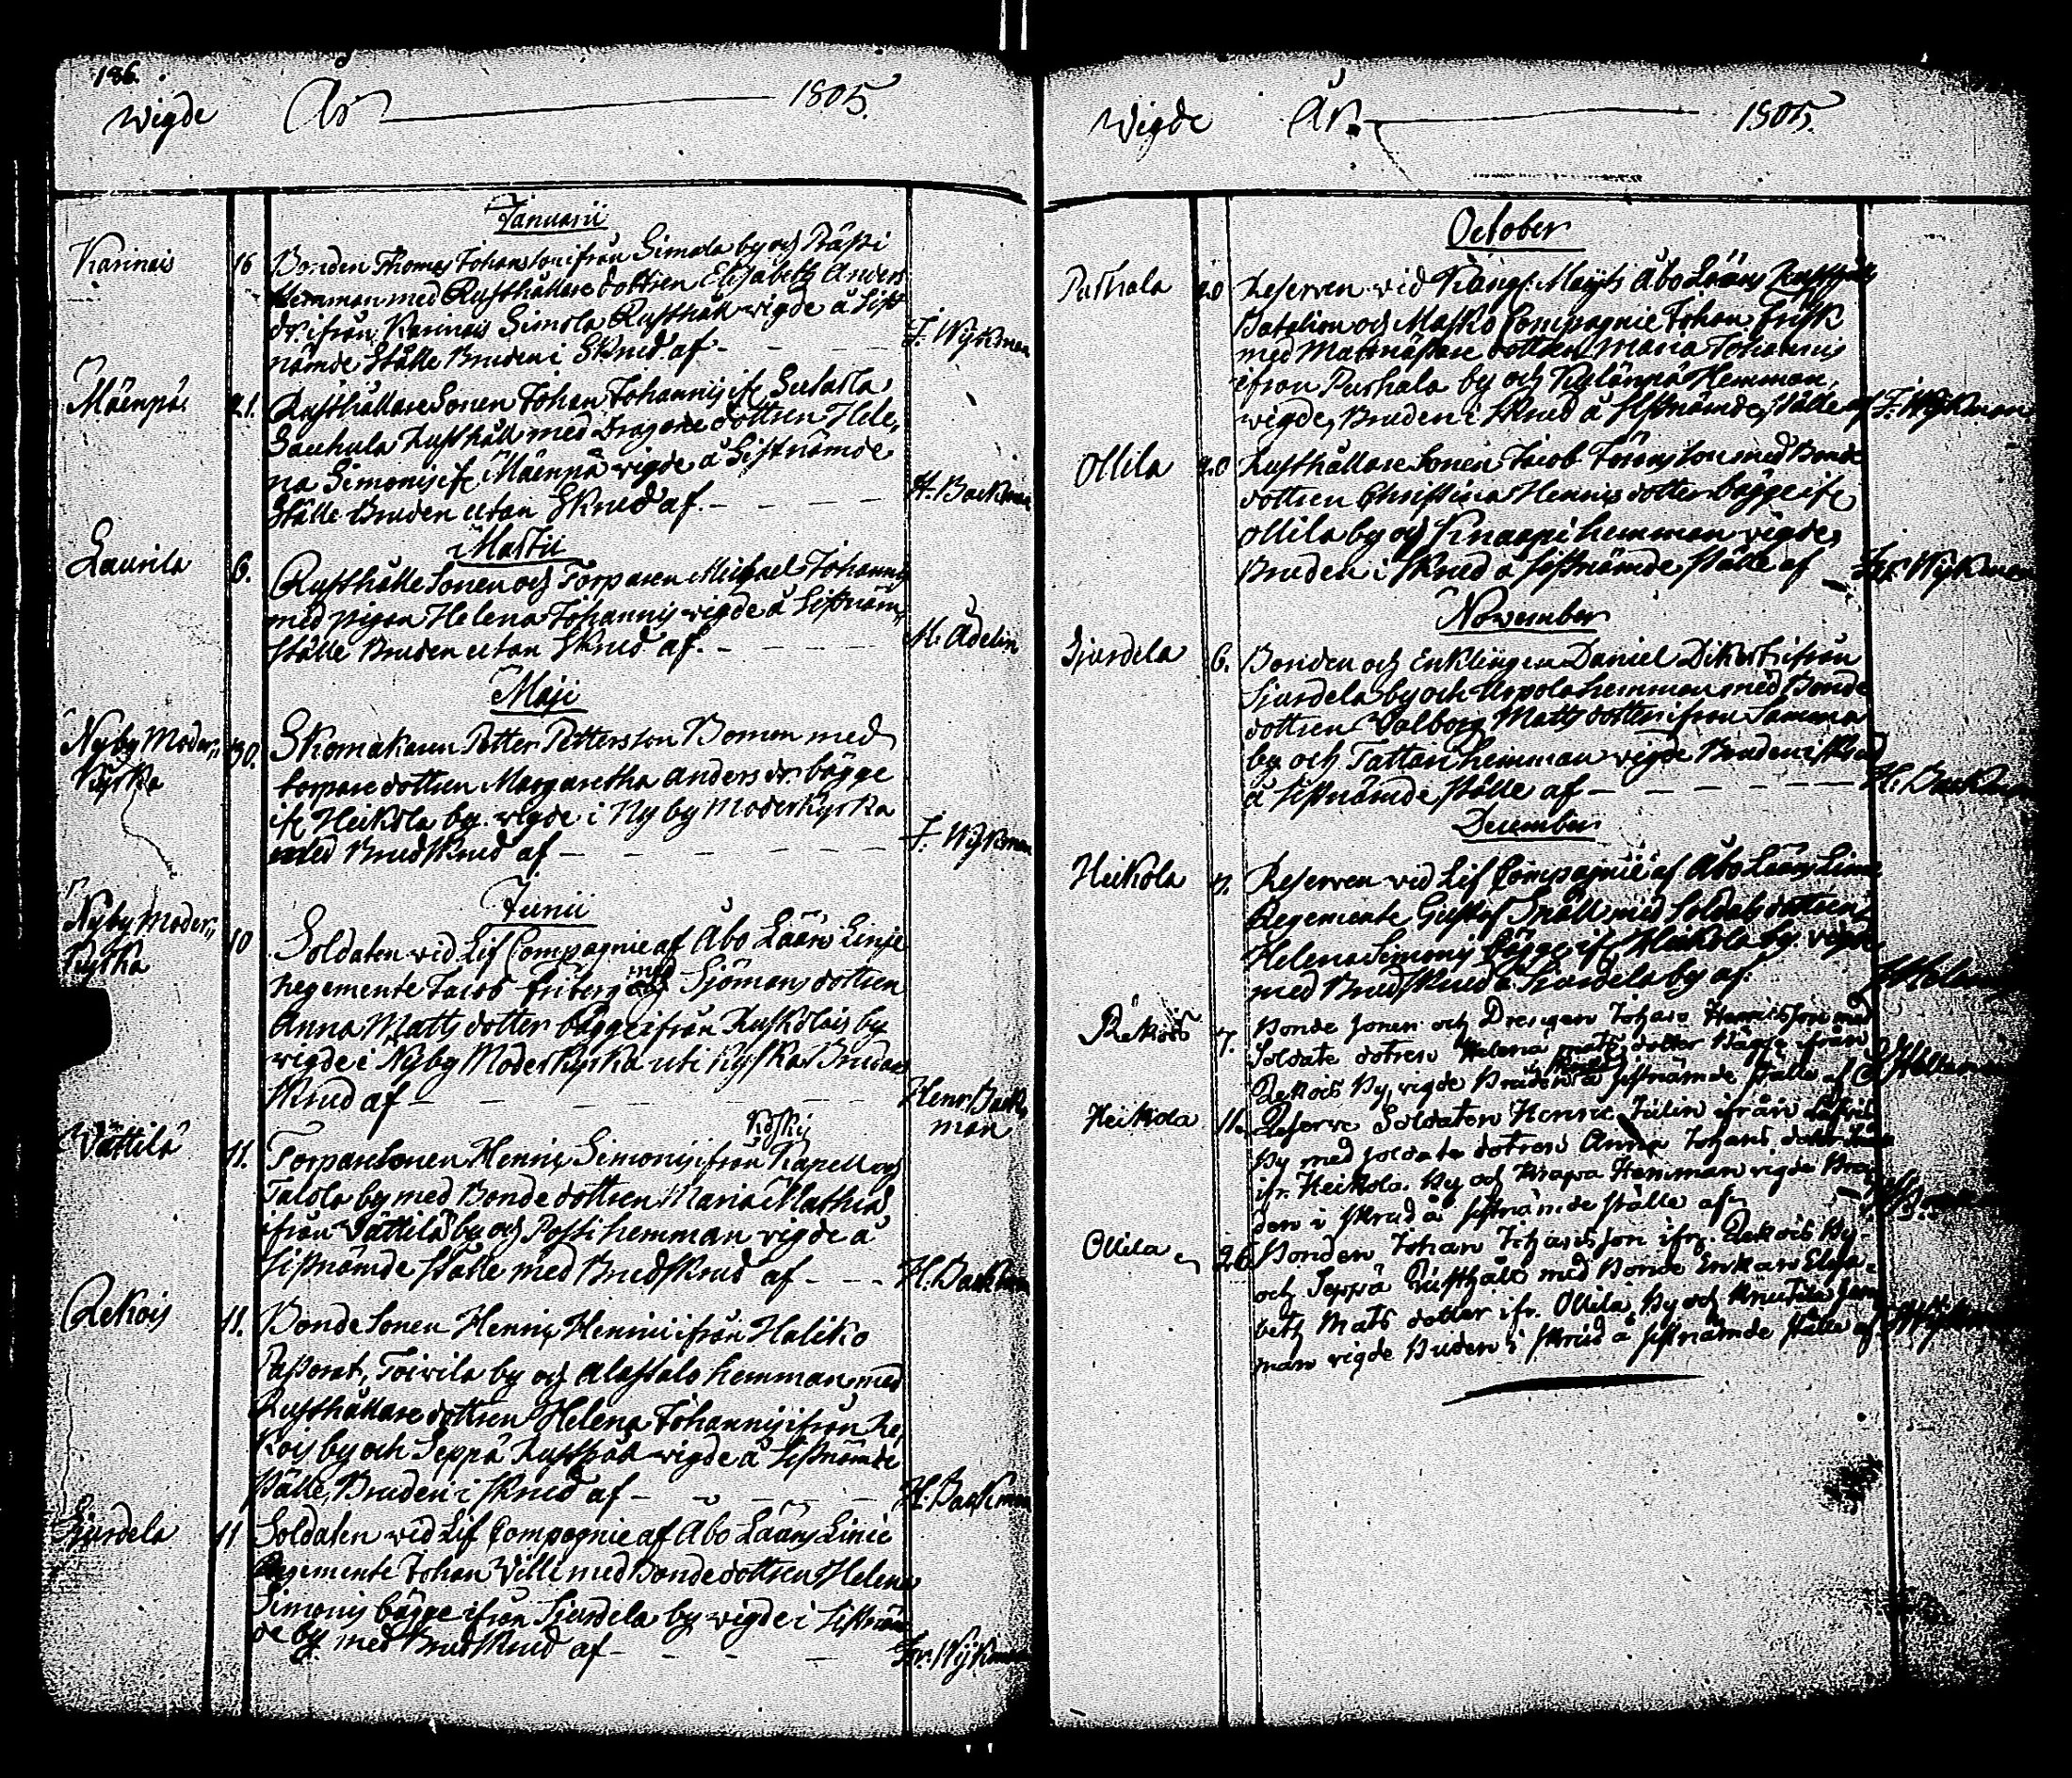 186.
Wigde År 1805.
Januarii
Karinais 16 Bonden Thomas Johansson ifrån Simola by och
Hemman med Rusthållare dottren Elisabeth Anders
dr. ifrån Karinais Simola Rusthåll wigde å sist
nämde Ställe Bruden i Skrud af - - - F. Wykman
Mäenpä 21. Rusthållare Sonen Johan Johannis if.
Rusthåll med Dragone dottren Hele,,
na Simonis if. Mäenpä wigde å Sistnämde
Ställe Bruden utan Skrud af. - - - H. Backman
Martii
Laurila 6. Rusthålle Sonen och Torparen Michael Johannis
med pigan Helena Johannis wigde å Sistnäm,,
ställe Bruden utan Skrud af. - - - M. Adelin
Maji
Nyby Moder,, 30. Skomakaren Petter Pettersson Boman med
Kyrka torpare dottren Margaretha Anders dr. bägge
if. Heikola by. wigde i Nyby Moderkyrka
med BrudSkrud af - - - F. Wykman
Junii
Nyby Moder,, 10 Soldaten vid Lif Compagnie af Åbo Läns Linje
Kyrka regemente Jacob Friberg med Sjömans dottren
Anna Matts dotter bägge ifrån Kuskois by
wigde i Nyby Moderkyrka uti Kyrkas Brudae
Skrud af - - - Henr. Back,,
man
Wättilä 11. Torpare Sonen Henric Simonis ifrån Koski Kapell och
Talola by med Bonde dottren Maria Mathiæ
ifrån Wättilä by och Possi hemman wigde å
Sistnämde ställe med Brudskrud af - - - H. Backman
Rekois 11. Bonde Sonen Henric Henrici ifrån Haliko
Pastorat, Toivila by och Alastalo hemman med
Rusthållare dottren Helena Johannis ifrån Re,,
kois by och Seppä Rusthåll wigde å sistnämde
ställe, Bruden i skrud af - - - H. Backman
Sjurdela 11 Soldaten vid Lif Compagnie af Åbo Läns Linie
Regemente Johan Vill med Bonde dottren Helena
Simonis bägge ifrån Sjurdela by wigde i sistnäm
de by. med Brudskrud af - - - Fr. Wykman
Wigde År. 1805.
October
Purhala 20 Reserven vid Kongl. Maijts Åbo Läns Rusthålls
Batalion och Masko Compagnie Johan Frisk
med dottren Maria Johannis
ifrån Purhala by och Kylänpä Hemman,
wigde, Bruden i skrud å sistnämde ställe af F. Wykman
Ollila 20 Rusthållare Sonen Jacob Göransson med Bonde
dottren Christina Henrics dotter bägge if.
Ollila by och Knaapi hemman wigde,
Bruden i skrud å sistnämde ställe af - Fr. Wykman
November
Sjurdela 6. Bonden och Enklingen Daniel Dikert ifrån
Sjurdela by och Uppola hemman med Bonde
dottren Valborg Matts dotter ifrån Samma
by och Tattari hemman wigde Bruden i skrud
å sistnämde, ställe af - - - H. Backman
December
Heikola 7. Reserven vid Lif Compagnie af Åbo Läns Linie
Regemente Gustaf Snäll med Soldats dottren
Helena Simonis bägge if. Heikola by. wigde
med Brudskrud å Sjurdela by af.
Rekois 7. Bonde Sonen och Drengen Johan Henricsson med
Soldate dotren Helena Mats dotter bägge ifrån
Rekois By, wigde Bruden i skrud å sistnämde ställe af
Heikola 11. Reserve Soldaten Henric Julin ifrån
By med soldate dotren Anna Johans dotter
ifr. Heikola. By och Krapu Hemman wigde Bru
den i skrud å sistnämde ställe af
Ollila 26 Bonden Johan Johansson ifr. Rekois By.
och Seppä Rusthåll med Bonde Enkan Elisa-
beth Mats dotter ifr. Ollila By och Knutila hem
man wigde Bruden i skrud å sistnämde ställe af Wykman